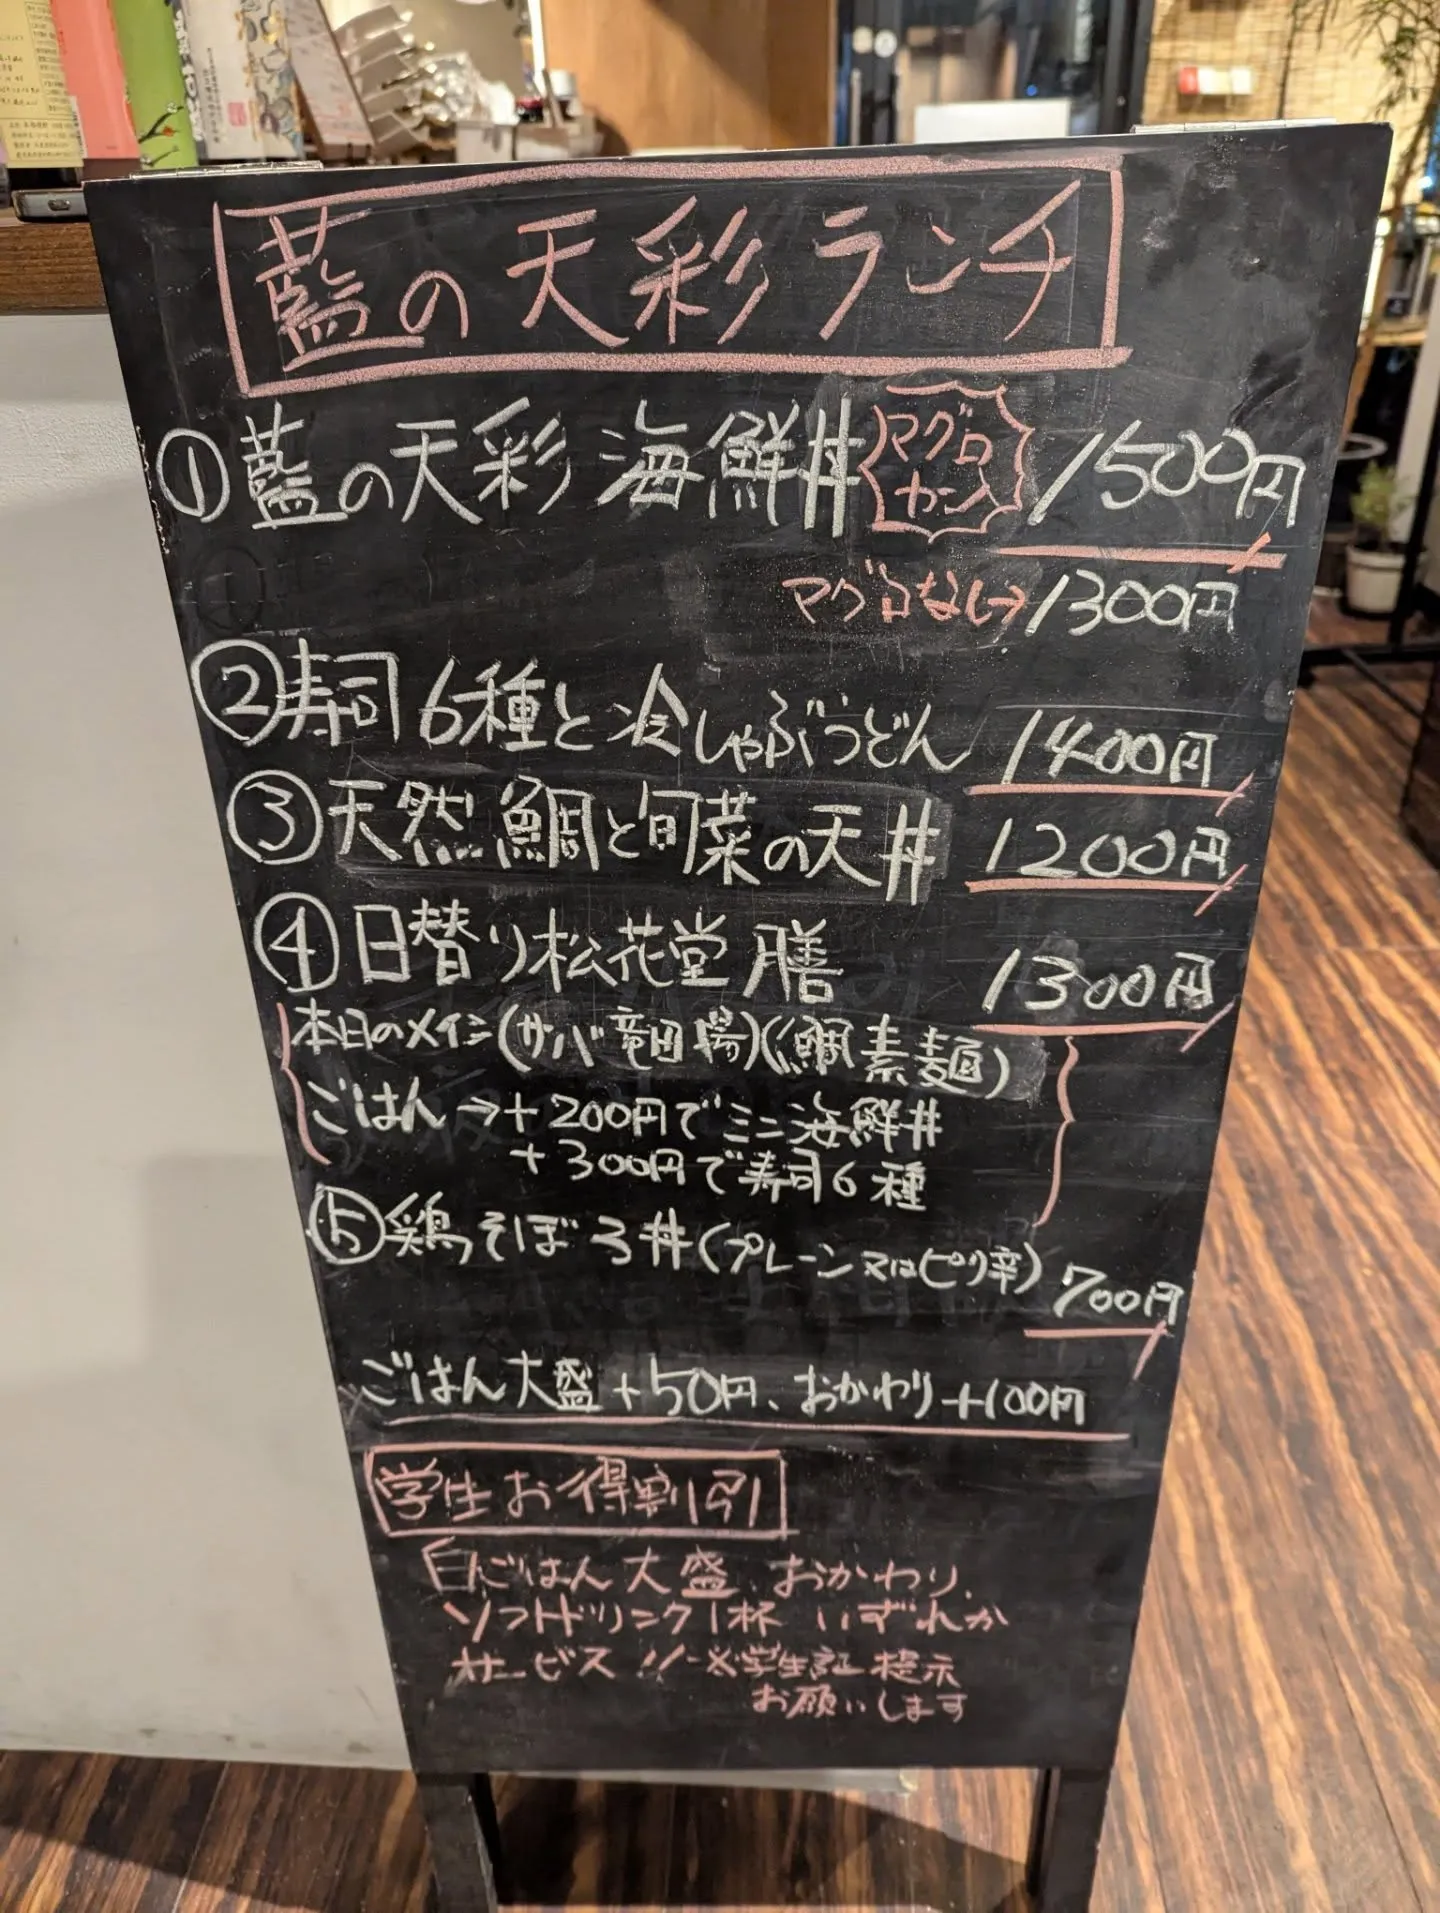 藍の天彩ランチ
①藍の天彩 海鮮丼 マグロカーン 1500円
マグロなし→1300円
②寿司6種と冷しゃぶうどん 1400円
③天然鯛と旬菜の天丼 1200円
④日替り松花堂膳 1300円
本日のメイン(サバ竜田揚)(鯛素麺)
ごはん→+200円でミニ海鮮丼
+300円で寿司6種
⑤鶏そぼろ丼(プレーン又はピリ辛) 700円
ごはん大盛+50円、おかわり+100円
学生お得割引
白ごはん大盛、おかわり、
ソフトドリンク1杯 いずれか
サービス!! ※学生証提示
お願いします